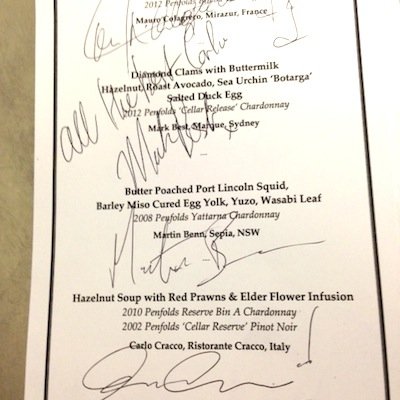 2012 Penfolds
Mauro Colagreco, Mirazur, France
Diamond Clams with Buttermilk
Hazelnut, Roast Avocado, Sea Urchin ‘Botarga’
Salted Duck Egg
2012 Penfolds ‘Cellar Release’ Chardonnay
all the best Carla
Mark Best, Marque, Sydney
Mark Best x
Butter Poached Port Lincoln Squid,
Barley Miso Cured Egg Yolk, Yuzo, Wasabi Leaf
2008 Penfolds Yattarna Chardonnay
Martin Benn, Sepia, NSW
Hazelnut Soup with Red Prawns & Elder Flower Infusion
2010 Penfolds Reserve Bin A Chardonnay
2002 Penfolds ‘Cellar Reserve’ Pinot Noir
Carlo Cracco, Ristorante Cracco, Italy